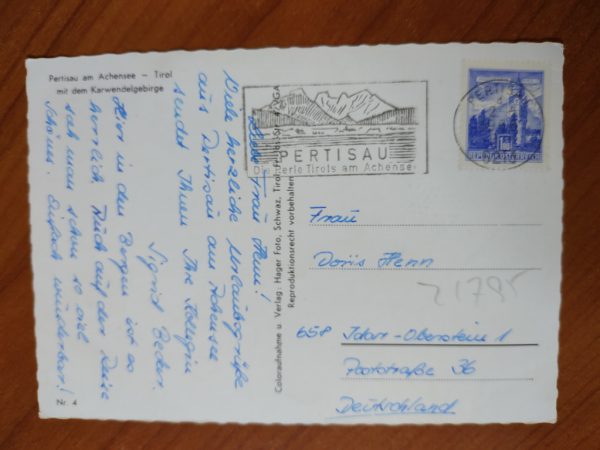 Pertisau am Achensee — Tirol
mit dem Karwendelgebirge
Liebe Frau Henn!
Viele herzliche Urlaubsgrüße
aus Pertisau am Achensee
sendet Ihnen Ihre Kollegin
Sigrid
Hier in den Bergen ist es
herrlich. Auch auf der Reise
sah man schon so viel
Schönes. Einfach wunderbar!
Nr. 4
Coloraufnahme u. Verlag: Hager Foto, Schwaz, Tirol
Reproduktionsrecht vorbehalten
PERTISAU
Die Perle Tirols am Achensee
PERTISAU
Frau
Doris Henn
21795
658 Idar-Oberstein 1
Poststraße 36
Deutschland